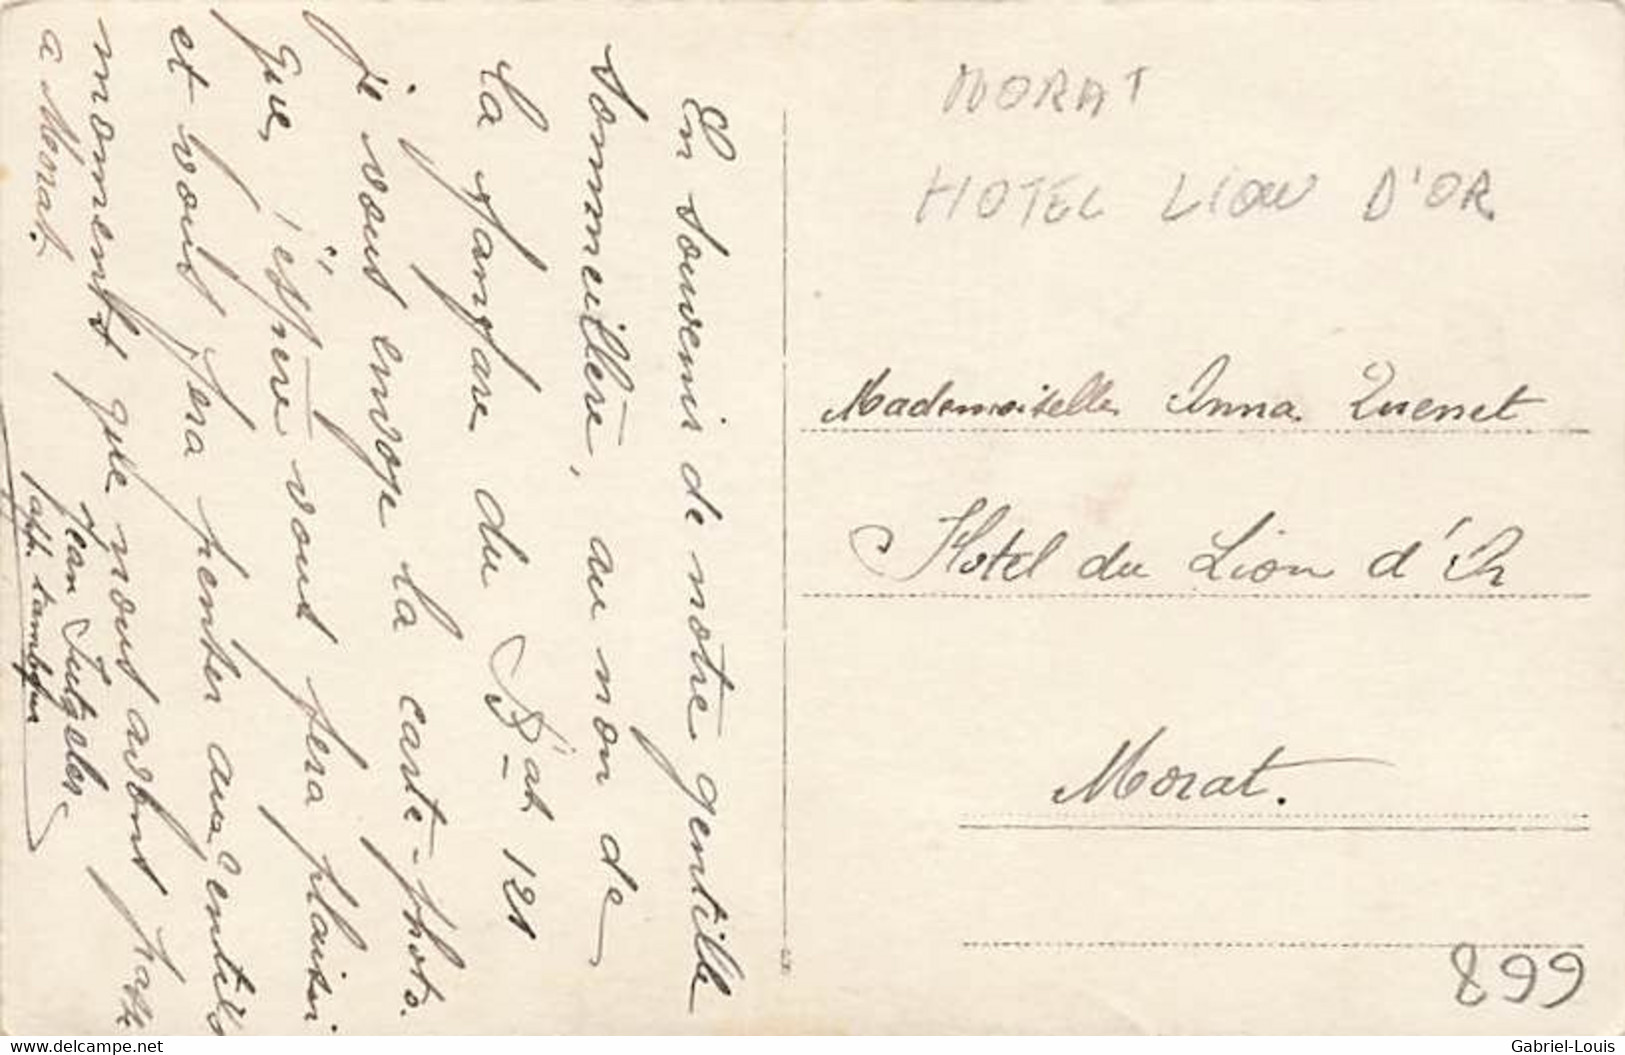 En souvenir de notre gentille
sommeillère, au non de
la fanfare du B at 121
je vous envoye la carte-photo.
que, j'éspère vous fera plaisir
et vous fera penser aux gentils
moments que nous avons passé
a Morat.
Jean
app. tambour
MORAT
HOTEL LION D'OR
Mademoiselle Anna Quenet
Hotel du Lion d'Or
Morat.
899
delcampe.net
Gabriel-Louis